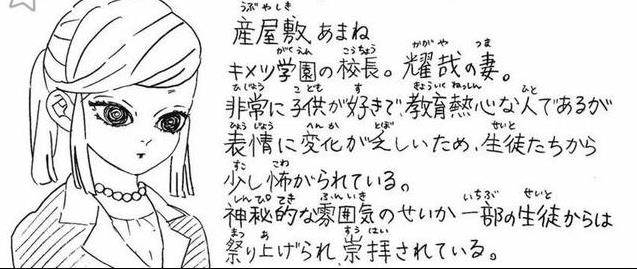 産屋敷 あまね
キメツ学園の校長。耀哉の妻。
非常に子供が好きで、教育熱心な人であるが
表情に変化が乏しいため、生徒たちから
少し怖がられている。
神秘的な雰囲気のせいか一部の生徒からは
祭り上げられ、崇拝されている。